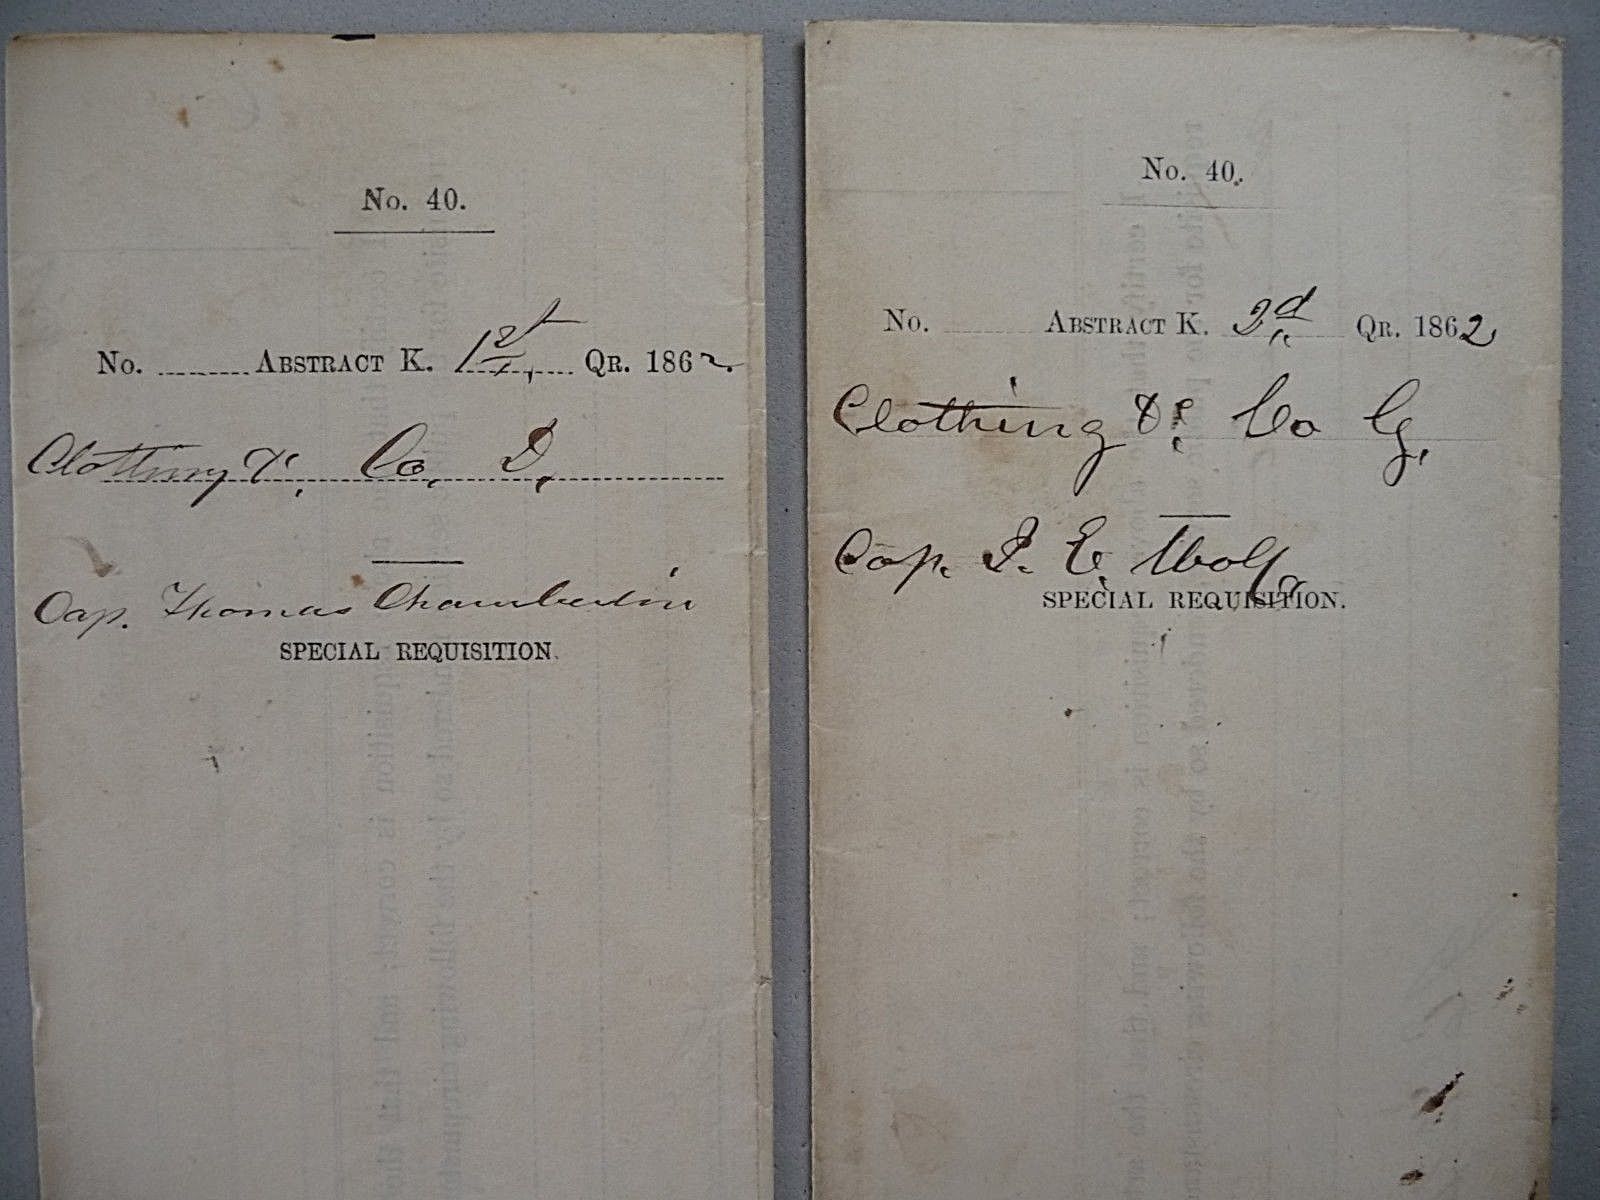 No. 40.
No. ABSTRACT K. 1st, QR. 1862.
Clothing &c, Co. D,
Cap. Thomas Chamberlin
SPECIAL REQUISITION.
No. 40.
No. ABSTRACT K. 2d, QR. 1862
Clothing &c. Co G,
Cap. I. E. Wolf
SPECIAL REQUISITION.